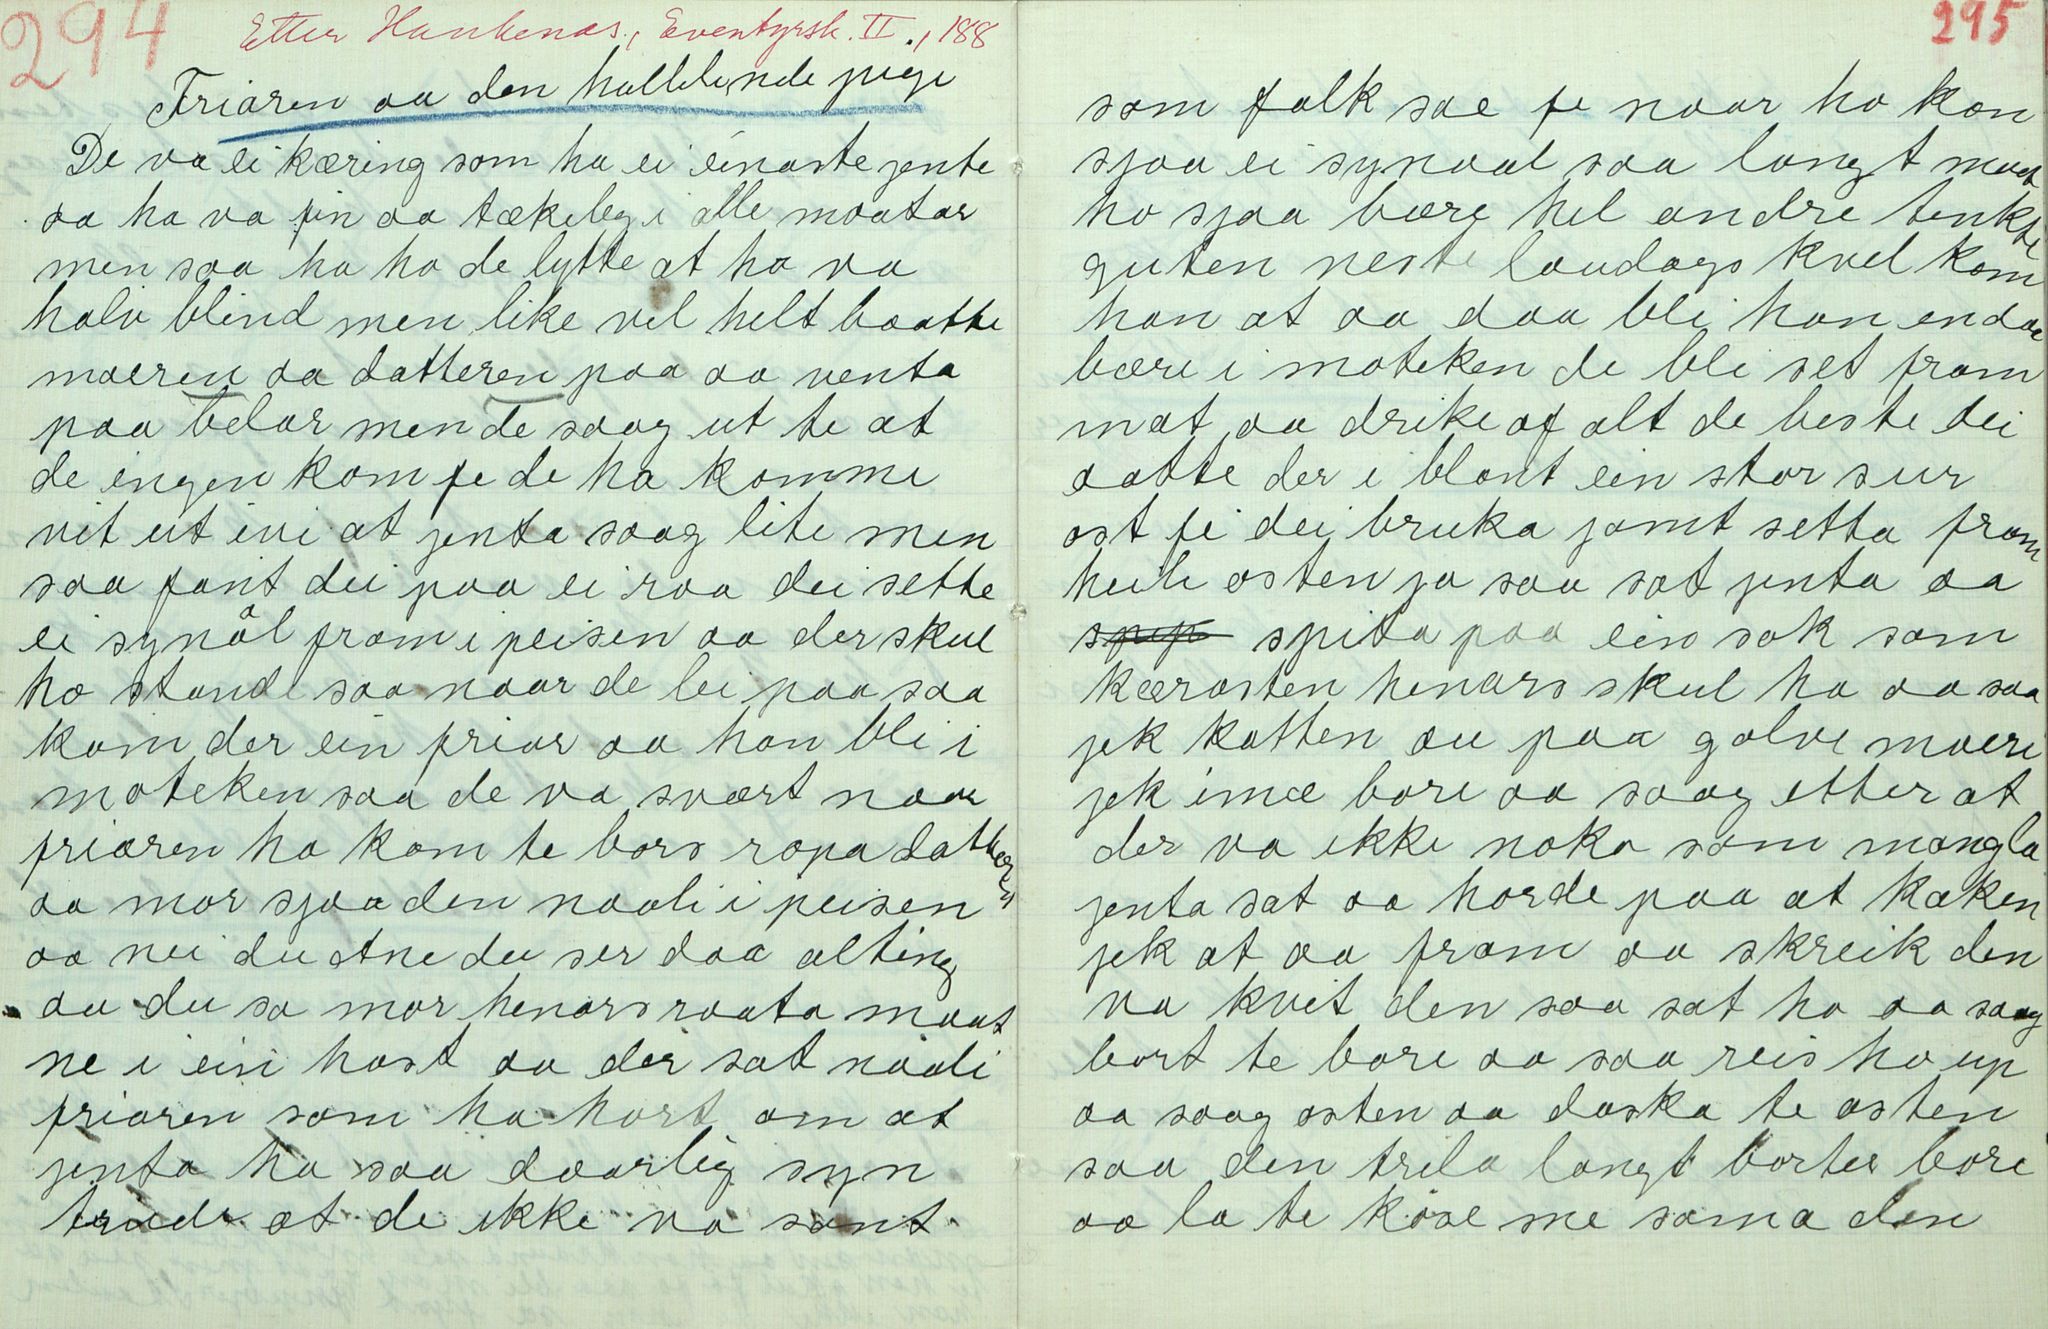 294
Etter Hankenæs, Eventyrsk. II., 188
Friaren aa den halblinde pige
De va ei kæring som ha ei einaste jente
aa ho va fin aa tækeleg i alle maatar
men saa ha ho de lytte at ho va
halv blind men like vel helt baatte
moeren aa datteren paa aa venta
paa belar men de saag ut te at
de ingen kom fe de ha komme
vit ut ivi at jenta saag lite men
saa fant dei paa ei raa dei sette
ei synål fram i peisen aa der skul
ho stande saa naar de lei paa saa
kom der ein friar aa han bli i
moteken saa de va svært naar
friaren ha kom te bors ropa datteren
aa mor sjaa den naali i peisen
aa nei du Ane du ser daa alting
aa du sa mor henars raata maat
ne i ein hast aa der sat naali
friaren som ha hort om at
jenta ha saa daarlig syn
trude at de ikke va sant
295
som folk sae fe naar ho kan
sjaa ei synaal saa langt maat
ho sjaa bære hel andre tenkte
guten neste laudags kvel kom
han at aa daa bli han endaa
bære i moteken de bli set fram
mat aa drike af alt de beste dei
aatte der i blant ein stor sur
ost fe dei bruka jamt setta fram
heile osten ja saa sat jenta aa
spita paa ein sok som
kærasten henars skul ha aa saa
jek katten au paa golve moere
jek imæ bore aa saag etter at
der va ikke noka som mangla
jenta sat aa horde paa at kæken
jek at aa fram aa skreik den
va kvit den saa sat ho aa saag
bort te bore aa saa reis ho up
aa saag osten aa daska te osten
saa den trila langt borter bore
aa la te kose me sama den